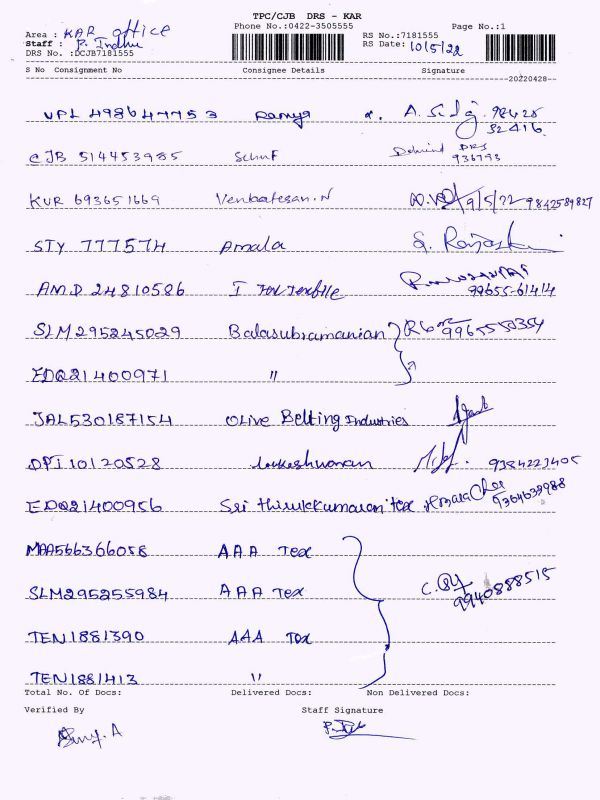 TPC/CJB DRS - KAR
Phone No.:0422-3505555
Page No.:1
Area : KAR office
Staff : P. Indhu
DRS No. :DCJB7181555
RS No.:7181555
RS Date: 10/5/22
S No Consignment No Consignee Details Signature
20220428
VPL 498647753 Ramya A. 98425
32416
CJB 514453985 Behind DRS
936793
KUR 693651669 Venkatesan.N 9/5/22 9842589827
STY 777574 Amala
AMD 24810586 99655-61414
SLM295245029 Balasubramanian 9965550354
EDQ21400971 "
JAL530187154 Olive Belting Industries
DPI 10120528 Lokeshwaran 9384223405
EDQ21400956 Sri thirukkumaran tex 9364639988
MAA566366058 AAA Tex
SLM295255984 AAA Tex 9940888515
TEN1881390 AAA Tex
TEN1881413 "
Total No. Of Docs: Delivered Docs: Non Delivered Docs:
Verified By Staff Signature